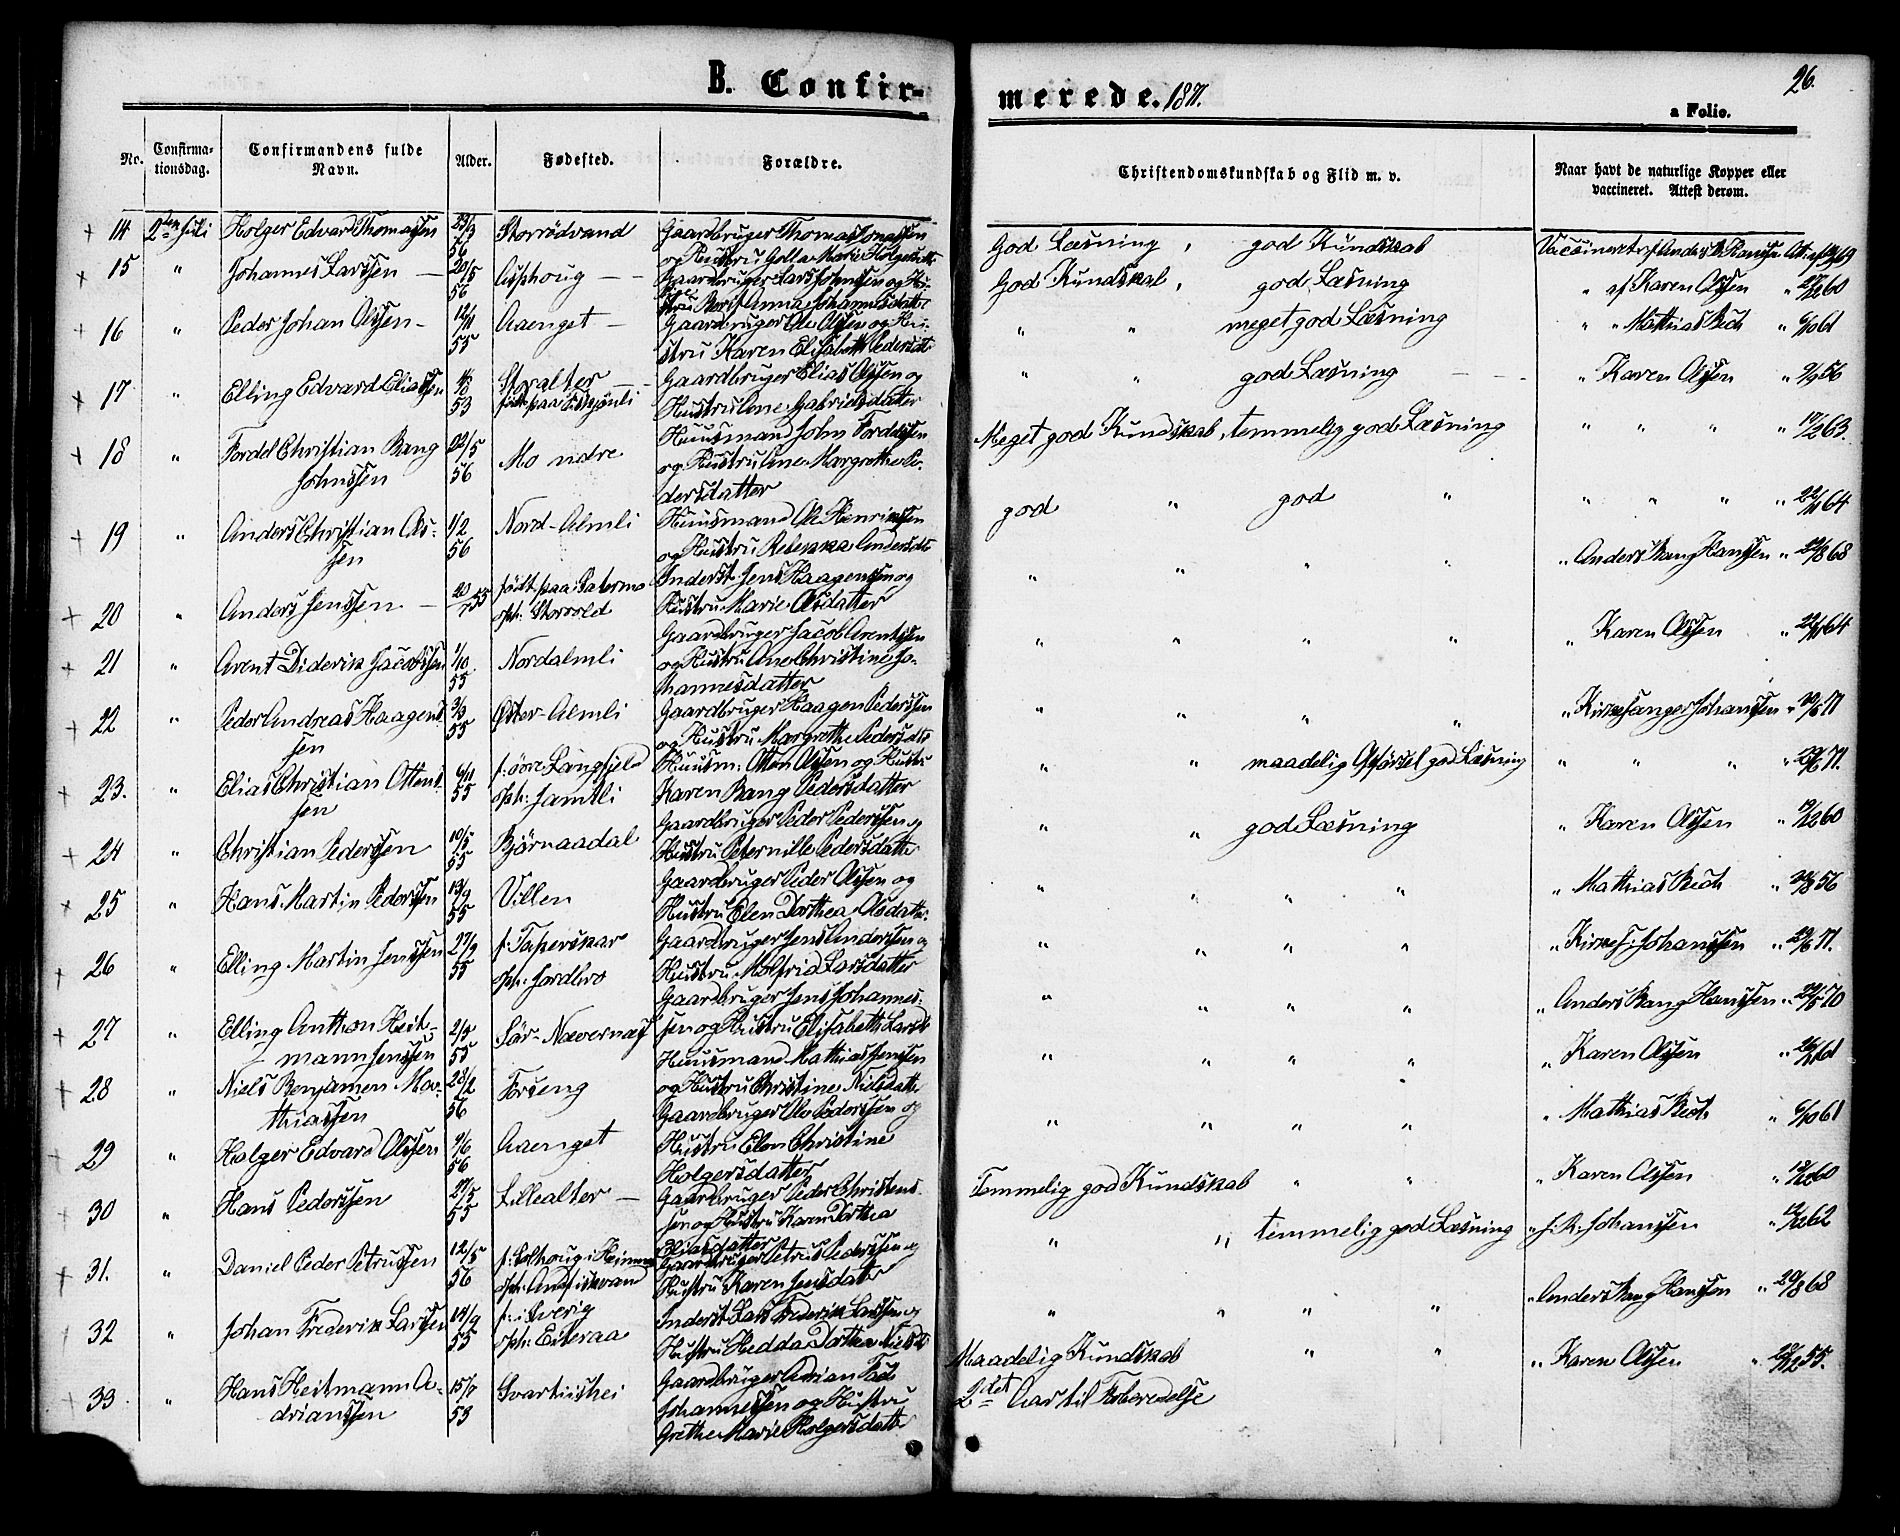 B. Confir-
merede. 1871.
26.
a Folio.
No. Confirma-tionsdag. Confirmandens fulde Navn. Alder. Fødested. Forældre. Christendomskundskab og Flid m. v. Naar havt de naturlige Kopper eller vaccineret. Attest derom.
14 2den Juli Holger Edvard Thomassen 23/3 56 Storrödvand Gaardbruger Thomas Jonassen
og Hustru Golla Marie Holgersdtr God Læsning, god Kundskab Vaccineret af Anders B. Hanssen Attest
15 " Johannes Larssen — 20/5 56 Alsphoug — Gaardbruger Lars Johnssen og Hu-
stru Berit Anna Johannesdatter God Kundskab, god Læsning " af Karen Olssen " 60
16 " Peder Johan Olssen - 12/11 55 Aaenget — Gaardbruger Ole Olssen og Hu-
stru Karen Elisabeth Pedersdtr " " meget god Læsning " " Mathias Bech " 6/10 61
17 " Elling Edvard Eliassen 53 Storalter
födt paa Gaardbruger Elias Olssen og
Hustru Ane Gabrielsdatter " " god Læsning " Karen Olssen " 9/9 56
18 " Tordel Christian Bang
Johnssen 22/5 56 Mo ndre Huusmand John Tordelssen
og Hustru Ane Margrethe Pe-
dersdatter Meget god Kundskab, temmelig god Læsning " " " " 63.
19 " Anders Christian Ols-
sen 1/2 56 Nord-Almli Huusmand Ole Henrikssen
og Hustru Rebekka Andersdtr god " god " " " " " 22/11 64
20 " Anders Jenssen — 20/7 55 födt paa
oph: Storvold Inderst Jens Haagenssen og
Hustru Marie Olsdatter " " " " " Anders Bang Hanssen " 68
21 " Arent Diderik Jacobssen 1/10 55 Nordalmli Gaardbruger Jacob Arentssen
og Hustru Ane Christine Jo-
hannesdatter " " " " " Karen Olssen " 22/11 64
22 " Peder Andreas Haagens-
sen 3/9 55 Öster-Almli Gaardbruger Haagen Pederssen
og Hustru Margrethe Pedersdtr " " " " " Kirkesanger Johanssen " 29/6 71
23. " Elias Christian Ottens-
sen 6/11 55 f: övre Langfjeld
oph: Jamtli Huusm: Otten Olssen og Hustru
Karen Bang Pedersdatter " " maadelig Opförsel god Læsning " " " " 29/6 71.
24 " Christian Pederssen 10/5 55 Bjørnaadal Gaardbruger Peder Pederssen og
Hustru Peternille Pedersdatter " " god Læsning " Karen Olssen " 60
25 " Hans Martin Pederssen 13/9 55 Villen Gaardbruger Peder Olssen og
Hustru Elen Dorthea Olsdatter " " " " " Mathias Bech " 56
26 " Elling Martin Jenssen 27/9 55 f: Taperskar
oph: Jordbro Gaardbruger Jens Anderssen og
Hustru Molfrid Larsdatter " " " " " Kirkes: Johanssen " 29/6 71.
27 " Elling Anthon Heit-
mann Jenssen 2/5 55 Sör-Nævernæs Gaardbruger Jens Johannes-
sen og Hustru Elisabeth Larsdtr " " " " " Anders Bang Hanssen " 70
28 " Niels Benjamen Ma-
thiassen 28/2 56 Forseng Huusmand Mathias Jenssen
og Hustru Christine Nielsdatter " " " " " Karen Olssen " 61
29 " Holger Edvard Olssen 9/6 56 Aaenget Gaardbruger Ole Pederssen og
Hustru Elen Christine
Holgersdatter " " " " " Mathias Bech " 6/10 61
30 " Hans Pederssen 27/5 55 Lillealter — Gaardbruger Peder Christens-
sen og Hustru Karen Dorthea
Eliasdatter Temmelig god Kundskab " " " Karen Olssen " 60
31. " Daniel Peder Petrussen 12/5 56 f: Solhoug i Hemnes
oph: Gaardbruger Petrus Pederssen og
Hustru Karen Jensdatter " " temmelig god Læsning " J. R. Johanssen " 62
32 " Johan Frederik Larssen 14/9 55 f: i Sverig
oph: Eiteraa Inderst Lars Frederik Larssen og
Hustru Hedda Dorthea Nielsdtr " " " " " Anders Bang Hanssen " 20/8 68
33 " Hans Heitmann A-
drianssen 15/7 53 Svartiishei Gaardbruger Adrian Falk
Johannessen og Hustru
Grethe Marie Holgersdatter Maadelig Kundskab " " " Karen Olssen " 55.
2det Aar til Forberedelse